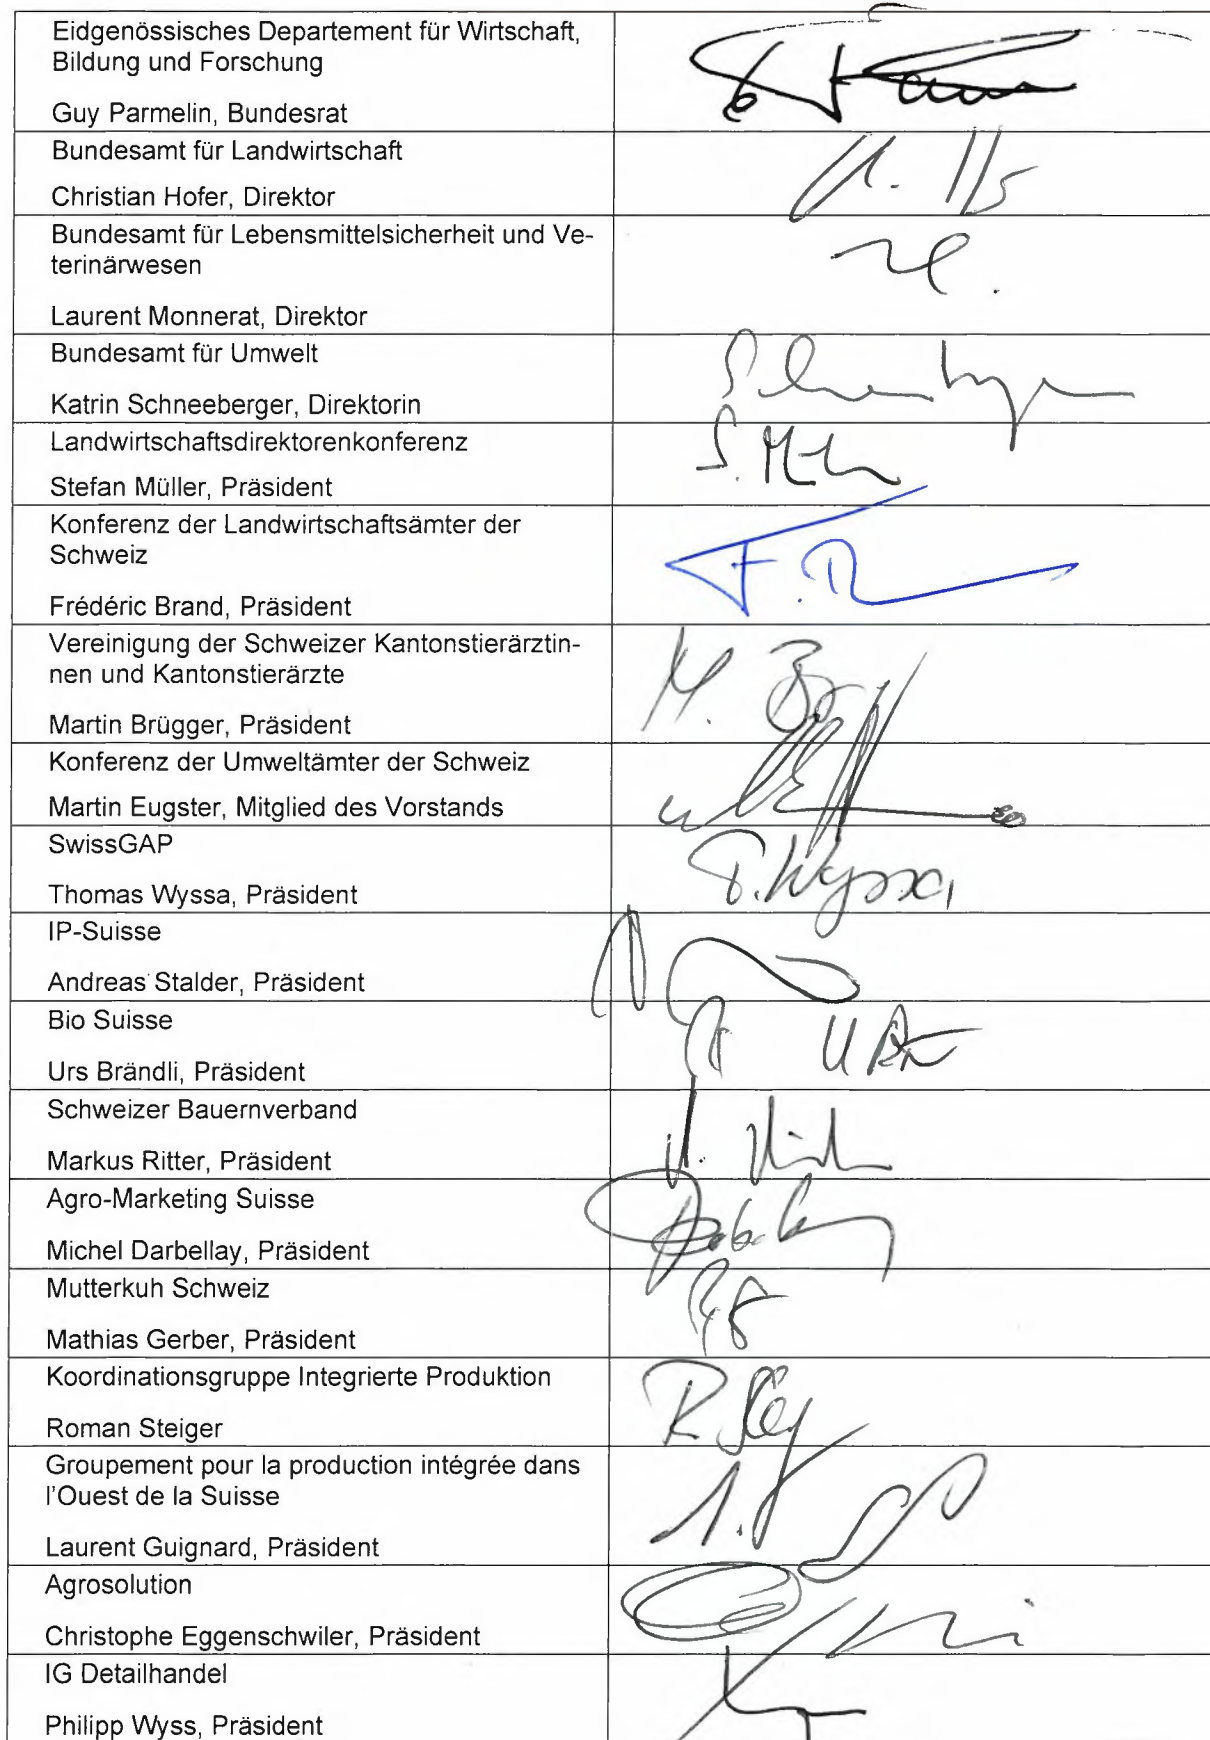 Eidgenössisches Departement für Wirtschaft,
Bildung und Forschung
Guy Parmelin, Bundesrat
Bundesamt für Landwirtschaft
Christian Hofer, Direktor
Bundesamt für Lebensmittelsicherheit und Ve-
terinärwesen
Laurent Monnerat, Direktor
Bundesamt für Umwelt
Katrin Schneeberger, Direktorin
Landwirtschaftsdirektorenkonferenz
Stefan Müller, Präsident
Konferenz der Landwirtschaftsämter der
Schweiz
Frédéric Brand, Präsident
F.
Vereinigung der Schweizer Kantonstierärztin-
nen und Kantonstierärzte
M.
Martin Brügger, Präsident
Konferenz der Umweltämter der Schweiz
Martin Eugster, Mitglied des Vorstands
SwissGAP
T. Wyssa
Thomas Wyssa, Präsident
IP-Suisse
Andreas Stalder, Präsident
Bio Suisse
Urs Brändli, Präsident
Schweizer Bauernverband
Markus Ritter, Präsident
Agro-Marketing Suisse
Michel Darbellay, Präsident
Mutterkuh Schweiz
Mathias Gerber, Präsident
Koordinationsgruppe Integrierte Produktion
Roman Steiger
Groupement pour la production intégrée dans
l'Ouest de la Suisse
Laurent Guignard, Präsident
Agrosolution
Christophe Eggenschwiler, Präsident
IG Detailhandel
Philipp Wyss, Präsident